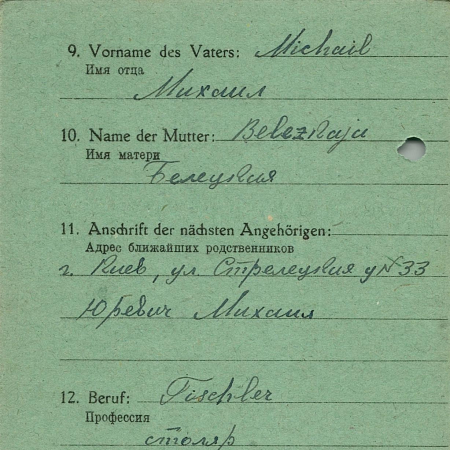 9. Vorname des Vaters: Michail
Имя отца
Михаил
10. Name der Mutter: Belezkaja
Имя матери
Белецкая
11. Anschrift der nächsten Angehörigen:
Адрес ближайших родственников
г. Киев, ул. Стрелецкая д N 33
Юревич Михаил
12. Beruf: Tischler
Профессия
столяр